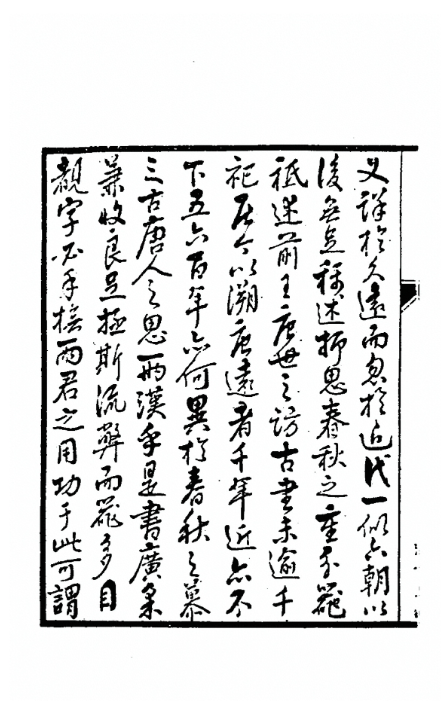 又詳於久遠而忽於近代一似六朝以
後無足稱述抑思春秋之重分器
祗述前王唐世之訪古書未逾千
祀居今以溯唐遠者千年近亦不
下五六百年亦何異於春秋之慕
三古唐人之思兩漢乎是書廣采
兼收良足拯斯流弊而器多目
覩字必手橅兩君之用功于此可謂